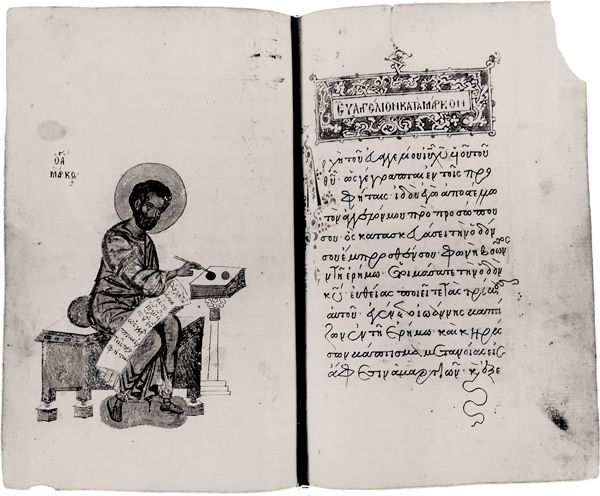 ὁ ἅ
ΜΑΡΚΟς
ΕΥΑΓΓΕΛΙΟΝ ΚΑΤΑ ΜΑΡΚΟΝ
ρχὴ τοῦ εὐαγγελίου ἰυ χυ υἱοῦ τοῦ
θυ· ὡς γέγραπται ἐν τοῖς προ
φήταις· ἰδοὺ ἐγὼ ἀποστέλλω
τὸν ἄγγελόν μου πρὸ προσώπου
σου· ὃς κατασκευάσει τὴν ὁδόν
σου ἔμπροσθέν σου· φωνὴ βοῶντος
ἐν τῇ ἐρήμω· ἑτοιμάσατε τὴν ὁδὸν
κυ· εὐθείας ποιεῖτε τὰς τρίβους
αὐτοῦ· ἐγένετο ἰωάννης βαπτί
ζων ἐν τῇ ἐρήμω· καὶ κηρύσ
σων βάπτισμα μετανοίας εἰς
ἄφεσιν ἁμαρτιῶν· κ ἐξε